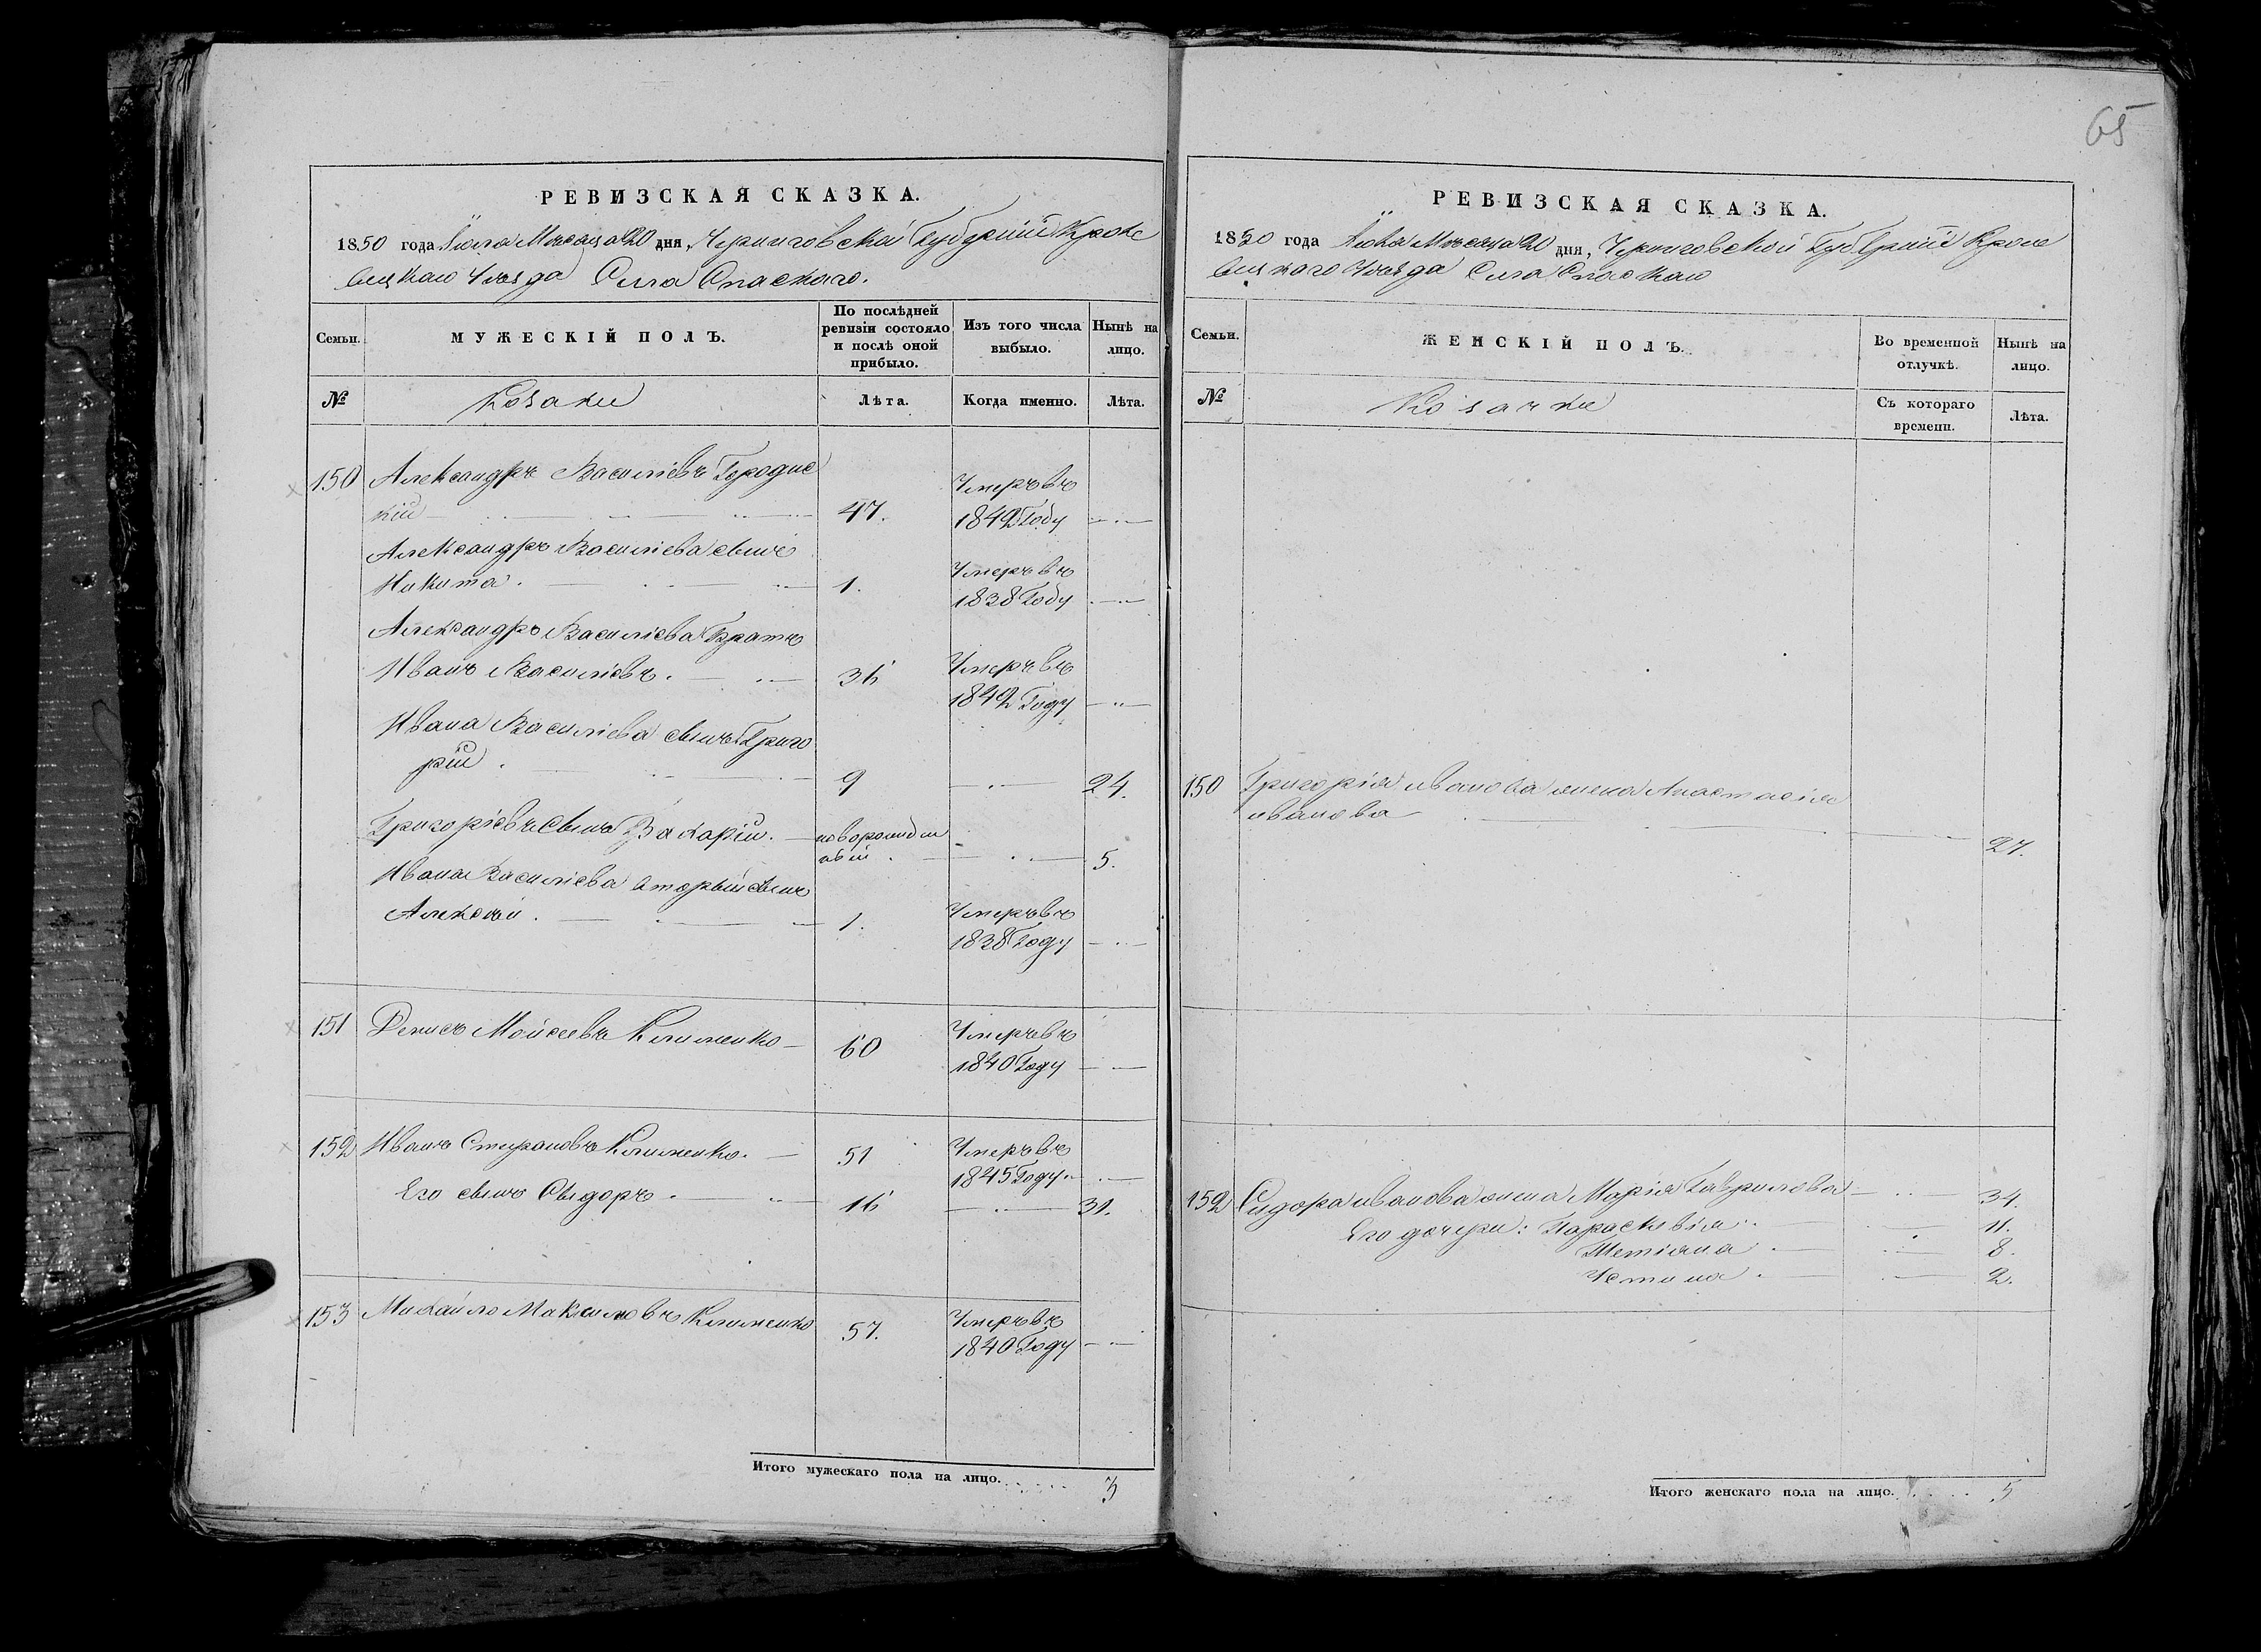 65
РЕВИЗСКАЯ СКАЗКА.
1850 года Іюля Месяца 20 дня, Черниговской Губерніи Кроле
вецкаго Уезда Села Спаского.
Семьи.
МУЖЕСКІЙ ПОЛЪ.
По послѣдней ревизіи состояло и послѣ оной прибыло.
Изъ того числа выбыло.
Нынѣ на лицо.
№
Козаки
Лѣта.
Когда именно.
Лѣта.
150 Александръ Василіевъ Городис
кій 47. Умеръ въ
1842 Году
Александра Василіева сынъ
Никита. 1. Умеръ въ
1838 Году
Александра Василіева Братъ
Иванъ Василіевъ. 36 Умеръ въ
1842 Году
Ивана Василіева сынъ Григо
рій. 9 24.
Григоріевъ Сынъ Захарій. новорожден
ный 5.
Ивана Василіева вторый сынъ
Алексей. 1. Умеръ въ
1838 Году
151 Денисъ Мойсеевъ Клименко 60 Умеръ въ
1840 Году
152 Иванъ Степановъ Клименко. 51 Умеръ въ
1845 Году
Его сынъ Сыдоръ 16 31.
153 Михайло Максимовъ Клименко 57. Умеръ въ
1840 Году
Итого мужескаго пола на лицо. 3
РЕВИЗСКАЯ СКАЗКА.
1850 года Іюля Месяца 20 дня, Черниговской Губерніи Кроле
вецкаго Уезда Села Спаскаго
Семьи.
ЖЕНСКІЙ ПОЛЪ.
Во временной отлучкѣ.
Нынѣ на лицо.
№
Козачки
Съ котораго времени.
Лѣта.
150 Григорія иванова жена Анастасія
иванова 27.
152 Сидора иванова жена Марія Гаврилова 34.
Его дочери: Параскевія. 11.
Тетіана. 8.
Устина. 2.
Итого женскаго пола на лицо. 5